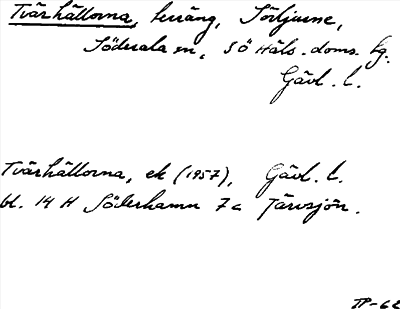 Tvärhällorna, terräng, Sörljusne,
Söderala sn, SÖ Häls. doms. hg.
Gävl. l.
Tvärhällorna, ek (1957), Gävl. l.
bl. 14 H Söderhamn 7c Tärnsjön.
TP-62